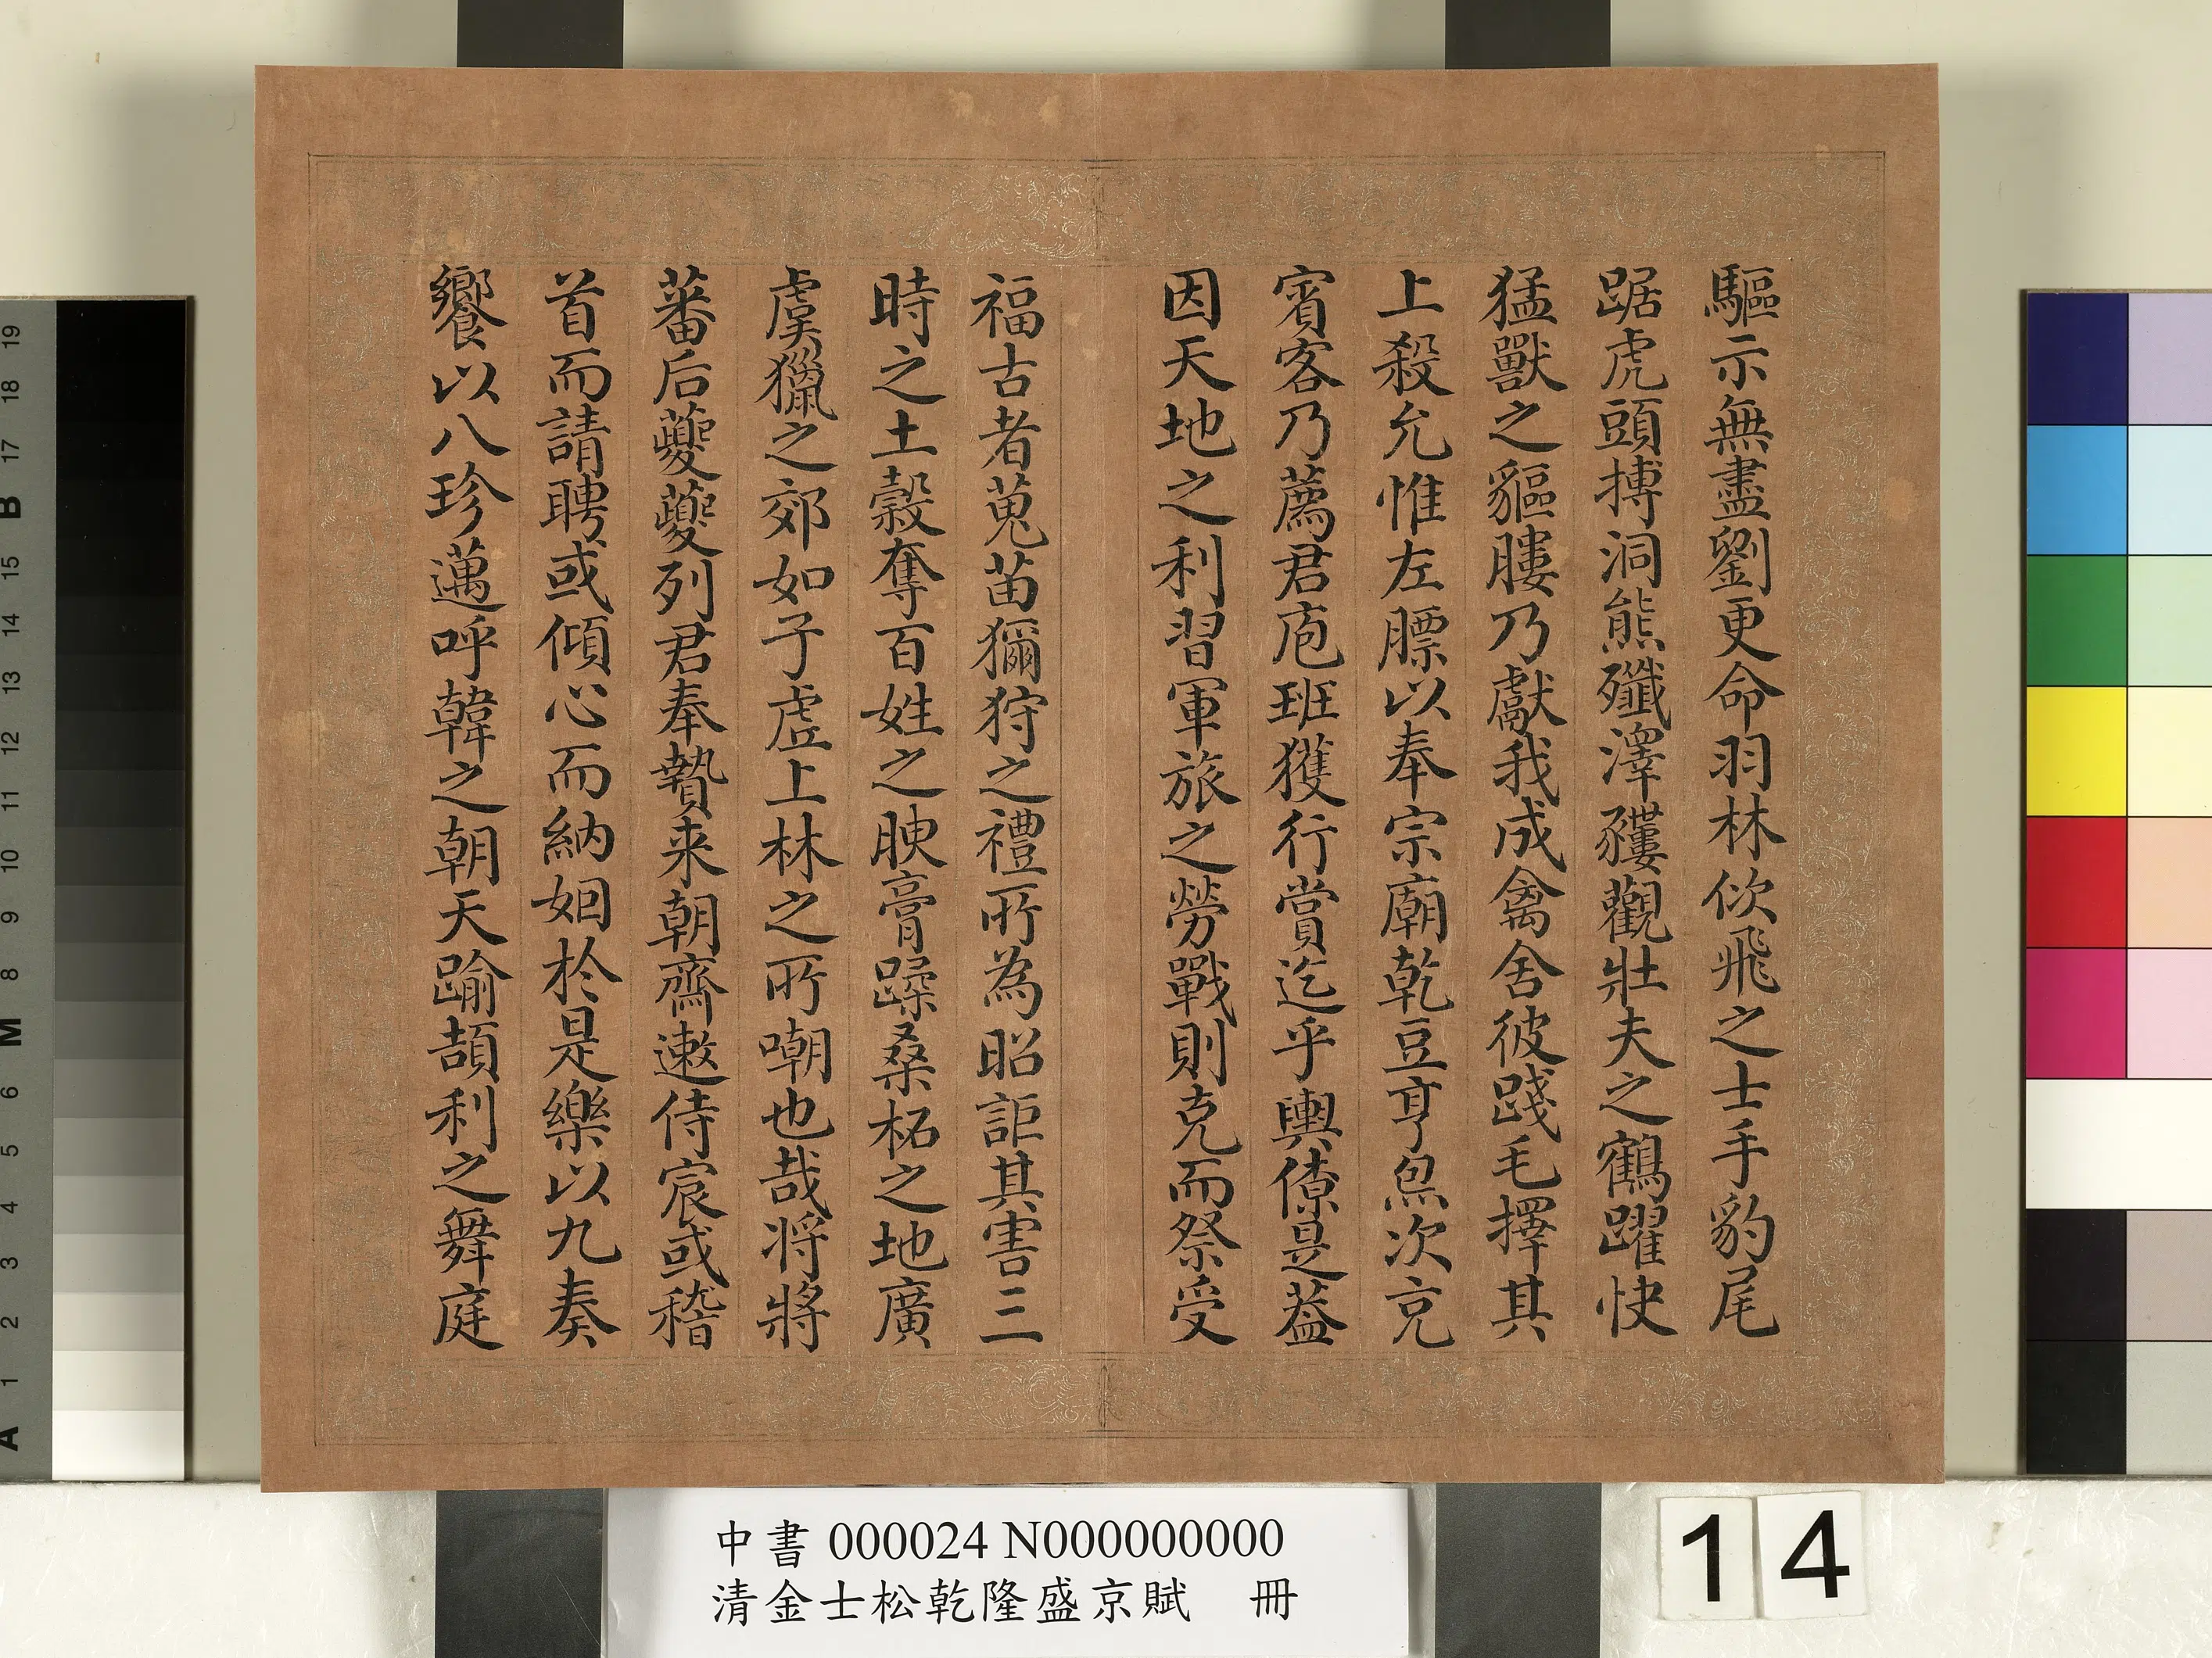 驅示無盡劉更命羽林佽飛之士手豹尾
踞虎頭搏洞熊殲澤貗觀壯夫之鶴躍快
猛獸之貙膢乃獻我成禽舍彼踐毛擇其
上殺允惟左膘以奉宗廟乾豆亨鳧次充
賓客乃薦君庖班獲行賞迄乎輿僚是蓋
因天地之利習軍旅之勞戰則克而祭受
福古者蒐苗獮狩之禮所為昭詎其害三
時之土穀奪百姓之腴膏蹂桑柘之地廣
虞獵之郊如子虛上林之所嘲也哉将將
蕃后夔夔列君奉贄来朝齊遫侍宸或稽
首而請聘或傾心而納姻於是樂以九奏
饗以八珍邁呼韓之朝天踰頡利之舞庭
中書 000024 N000000000
清金士松乾隆盛京賦 冊
14
19
18
17
B
15
14
13
12
11
10
9
8
M
6
5
4
3
2
1
A